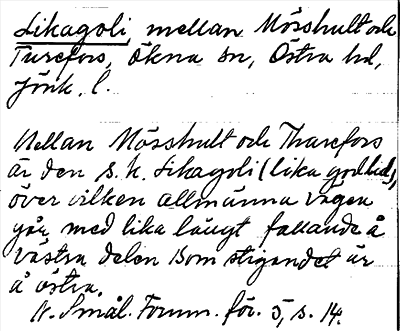 Likagoli, mellan Mösshult och
Turefors, Ökna sn, Östra hd,
Jönk. l.
Mellan Mösshult och Tharefors
är den s. k. Likagoli (lika god lid),
över vilken allmänna vägen
går med lika långt fallande å
västra delen som stigandet är
å östra.
N. Smål. Fornm. för. 5, s. 14.